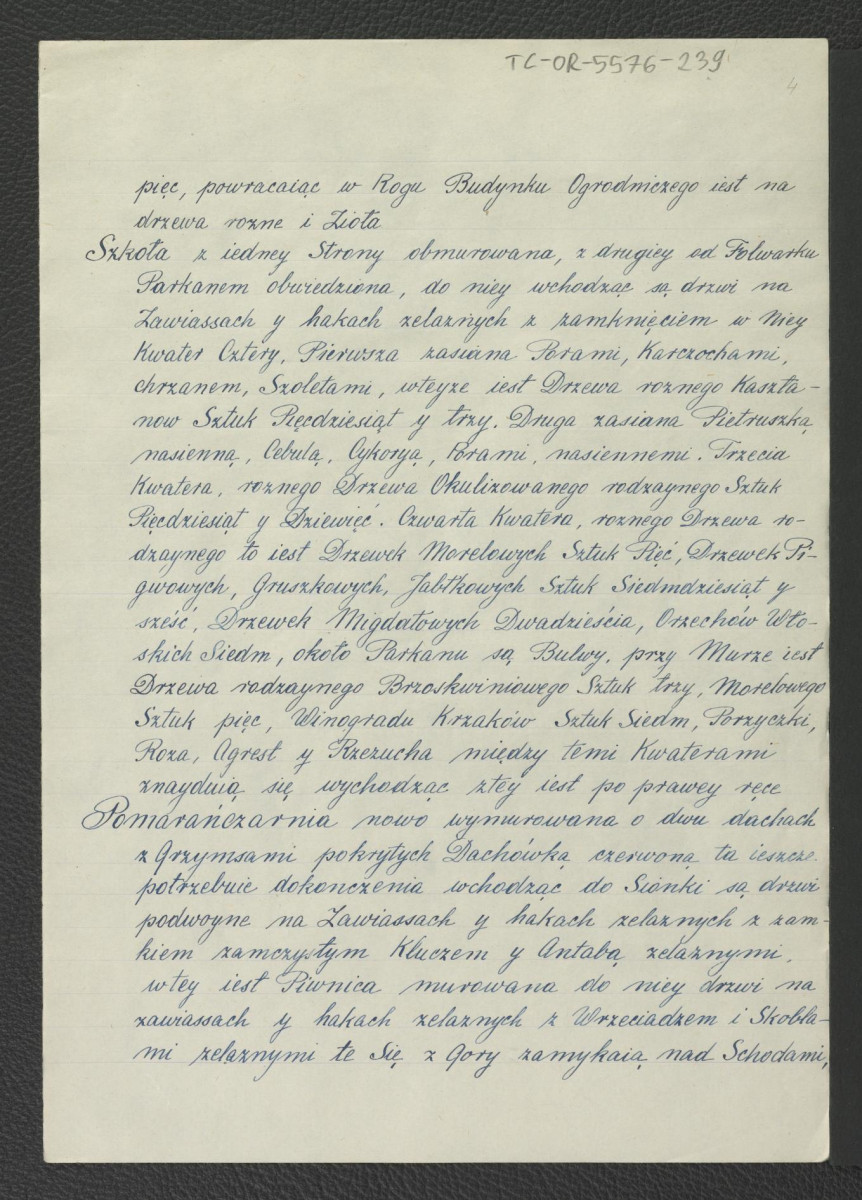 TC-OR-5576-239
4
pięc, powracaiąc w Rogu Budynku Ogrodniczego iest na
drzewa rozne i Zioła
Szkoła z iedney Strony obmurowana, z drugiey od Folwarku
Parkanem obwiedziona, do niey wchodząc są drzwi na
Zawiassach y hakach zelaznych z zamknięciem w Niey
Kwater Cztery, Pierwsza zasiana Porami, Karczochami,
chrzanem, Szoletami, wteyze iest Drzewa roznego Kaszta-
now Sztuk Pięcdziesiąt y trzy. Druga zasiana Pietruszką
nasienną, Cebulą, Cykoryą, Porami, nasiennemi. Trzecia
Kwatera, roznego Drzewa Okulizowanego rodzaynego Sztuk
Pięcdziesiąt y Dziewięć. Czwarta Kwatera, roznego Drzewa ro-
dzaynego to iest Drzewek Morelowych Sztuk Pięć, Drzewek Pi-
gwowych, Gruszkowych, Jabłkowych Sztuk Siedmdziesiąt y
sześć, Drzewek Migdałowych Dwadzieścia, Orzechów Wło-
skich Siedm, około Parkanu są Bulwy, przy Murze iest
Drzewa rodzaynego Brzoskwiniowego Sztuk trzy, Morelowego
Sztuk pięc, Winogradu Krzaków Sztuk Siedm, Porzyczki,
Roza, Agrest y Rzezucha między temi Kwaterami
znayduią się wychodząc ztey iest po prawey ręce
Pomarańczarnia nowo wymurowana o dwu dachach
z Grzymsami pokrytych Dachówką czerwoną ta ieszcze
potrzebuie dokonczenia wchodząc do Sionki są drzwi
podwoyne na Zawiassach y hakach zelaznych z zam-
kiem zamczystym Kluczem y Antabą zelaznymi,
wtey iest Piwnica murowana do niey drzwi na
zawiassach y hakach zelaznych z Wrzeciadzem i Skobla-
mi zelaznymi te Się z Gory zamykaią nad Schodami,